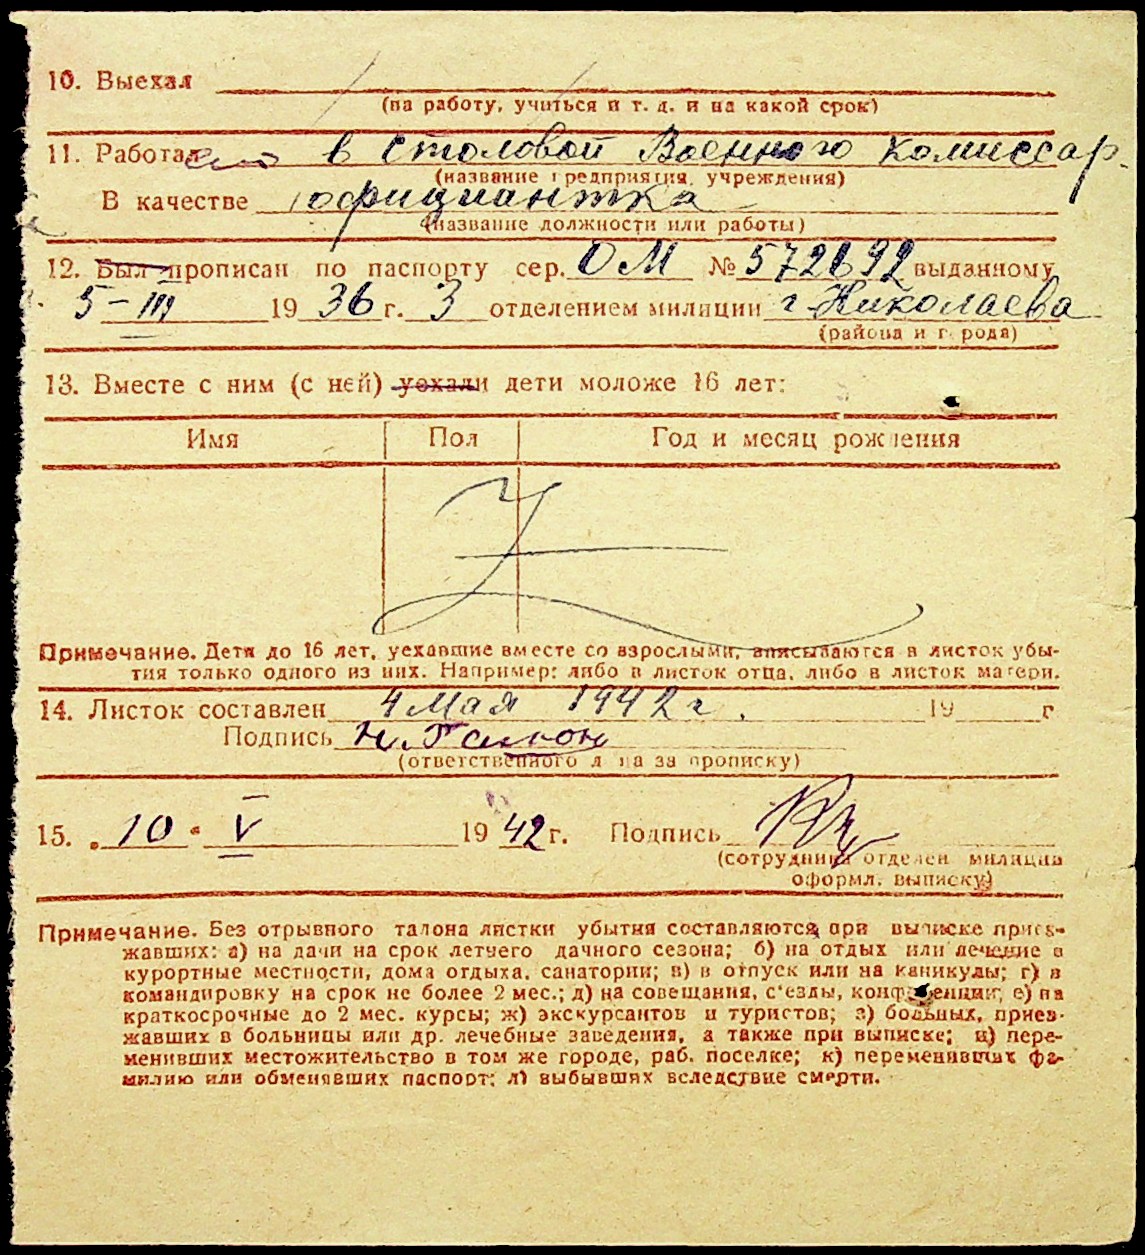 10. Выехал
(на работу, учиться и т. д. и на какой срок)
11. Работал в столовой Военного Комиссар.
(название предприятия, учреждения)
В качестве официантка
(название должности или работы)
12. Был прописан по паспорту сер. ОМ № 572692 выданному
5-III 1936 г. 3 отделением милиции г. Николаева
(района и города)
13. Вместе с ним (с ней) уехали дети моложе 16 лет:
Имя Пол Год и месяц рождения
Z
Примечание. Дети до 16 лет, уехавшие вместе со взрослыми, вписываются в листок убы-
тия только одного из них. Например: либо в листок отца, либо в листок матери.
14. Листок составлен 4 Мая 1942 г. 19 г
Подпись Н.
(ответственного л на за прописку)
15. „10“ V 1942 г. Подпись
(сотрудника отделен. милиции
оформл. выписку)
Примечание. Без отрывного талона листки убытия составляются при выписке приез-
жавших: а) на дачи на срок летнего дачного сезона; б) на отдых или лечение в
курортные местности, дома отдыха, санатории; в) в отпуск или на каникулы; г) в
командировку на срок не более 2 мес.; д) на совещания, с'езды, конференции; е) на
краткосрочные до 2 мес. курсы; ж) экскурсантов и туристов; з) больных, приез-
жавших в больницы или др. лечебные заведения, а также при выписке; и) пере-
менивших местожительство в том же городе, раб. поселке; к) переменивших фа-
милию или обменявших паспорт; л) выбывших вследствие смерти.